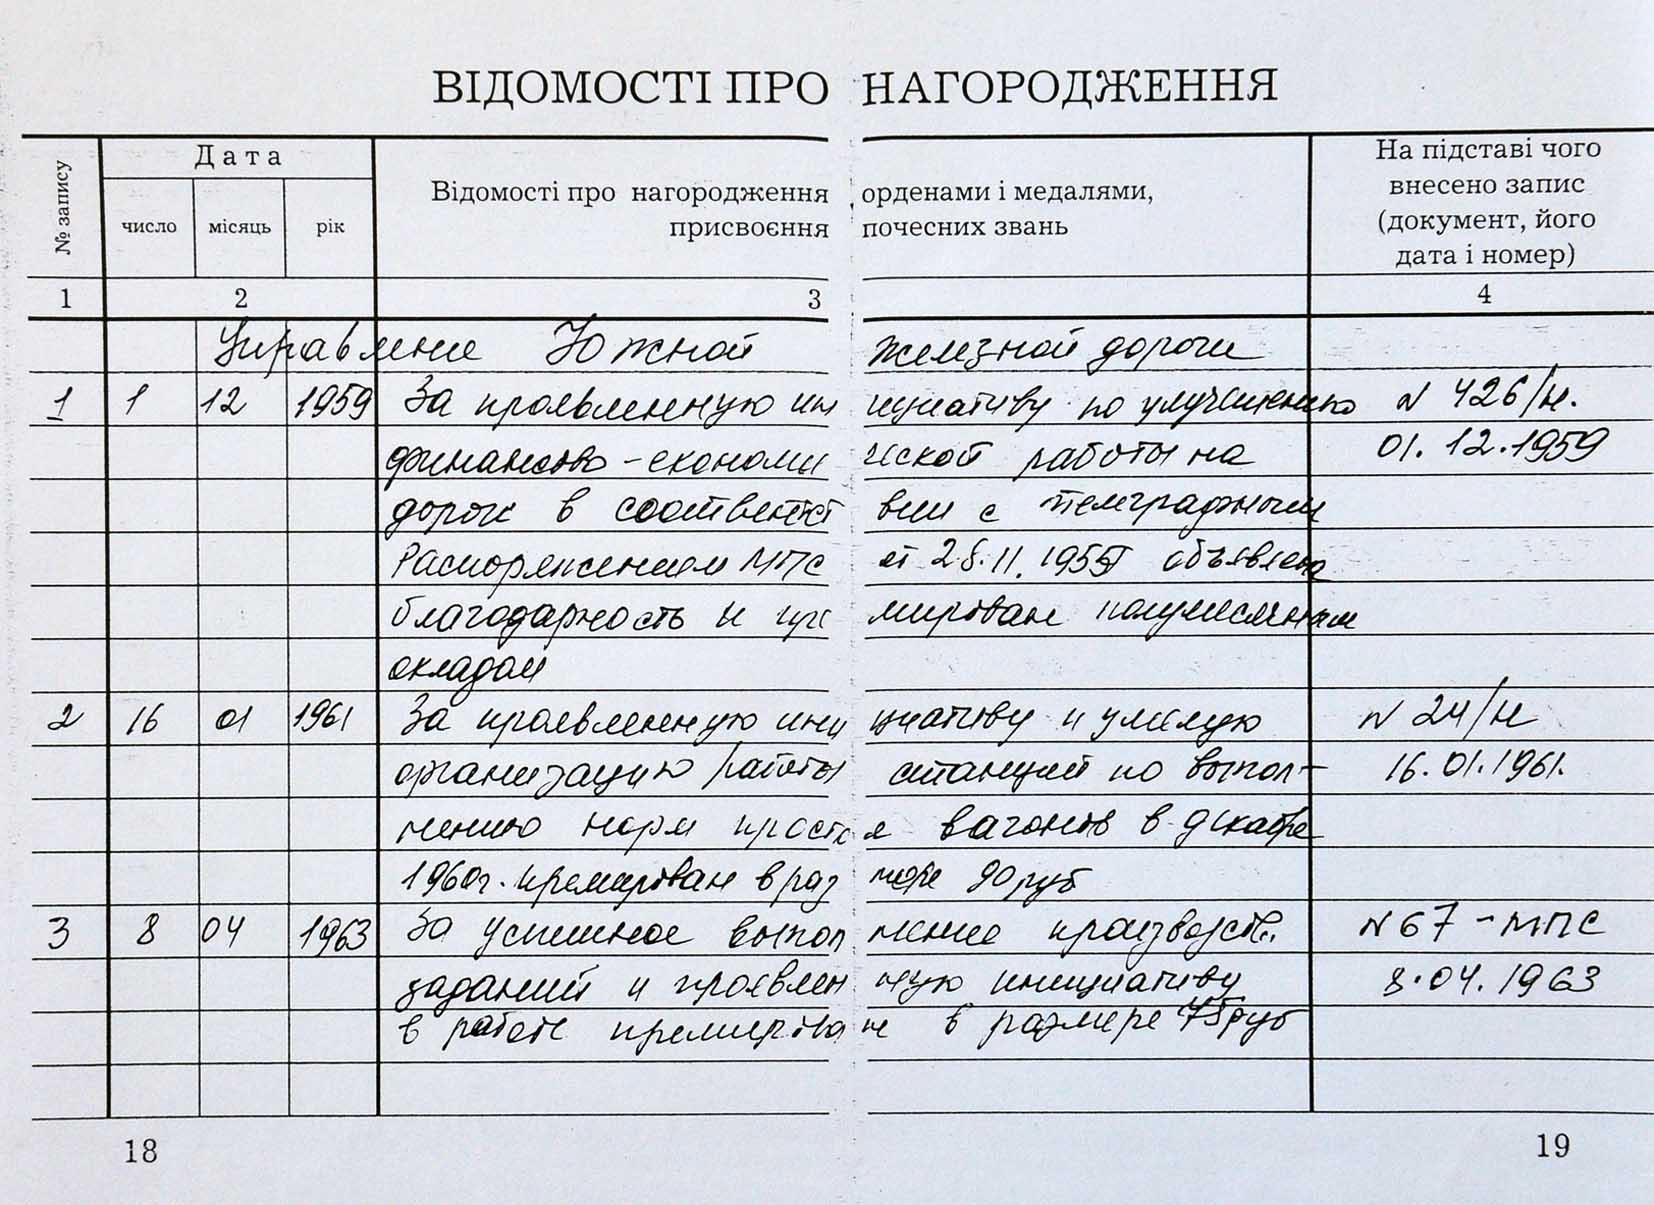 ВІДОМОСТІ ПРО НАГОРОДЖЕННЯ
№ запису
Дата
число місяць рік
Відомості про нагородження орденами і медалями,
присвоєння почесних звань
На підставі чого
внесено запис
(документ, його
дата і номер)
1 2 3 4
Управление Южной железной дороги
1 1 12 1959 За проявленную инициативу по улучшению N 426/н.
финансово-економической работы на 01.12.1959
дороге в соответствии с телеграфным
Распоряжением МПС от 28.11.1959 объявлена
благодарность и премирован полумесячным
окладом
2 16 01 1961 За проявленную инициативу и умелую N 24/н
организацию работы станций по выпол- 16.01.1961.
нению норм простоя вагонов в декабре
1960г. премирован в размере 90 руб
3 8 04 1963 За успешное выполнение производств. N 67-МПС
заданий и проявленную инициативу 8.04.1963
в работе премирован в размере 75 руб
18 19